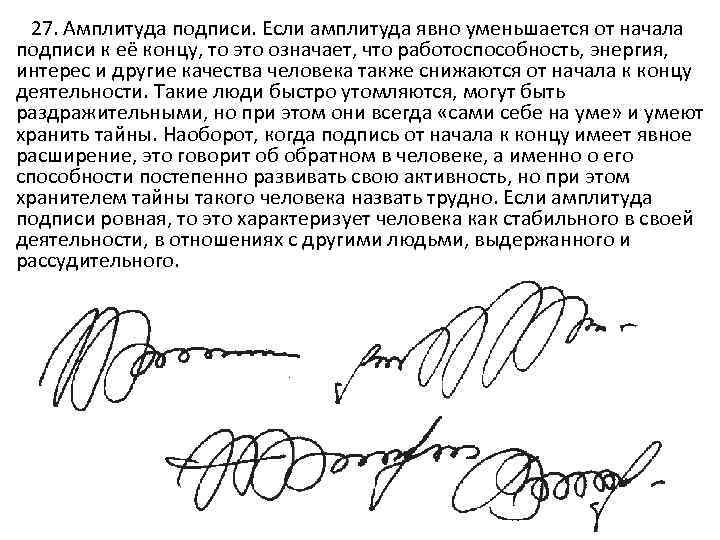 27. Амплитуда подписи. Если амплитуда явно уменьшается от начала
подписи к её концу, то это означает, что работоспособность, энергия,
интерес и другие качества человека также снижаются от начала к концу
деятельности. Такие люди быстро утомляются, могут быть
раздражительными, но при этом они всегда «сами себе на уме» и умеют
хранить тайны. Наоборот, когда подпись от начала к концу имеет явное
расширение, это говорит об обратном в человеке, а именно о его
способности постепенно развивать свою активность, но при этом
хранителем тайны такого человека назвать трудно. Если амплитуда
подписи ровная, то это характеризует человека как стабильного в своей
деятельности, в отношениях с другими людьми, выдержанного и
рассудительного.